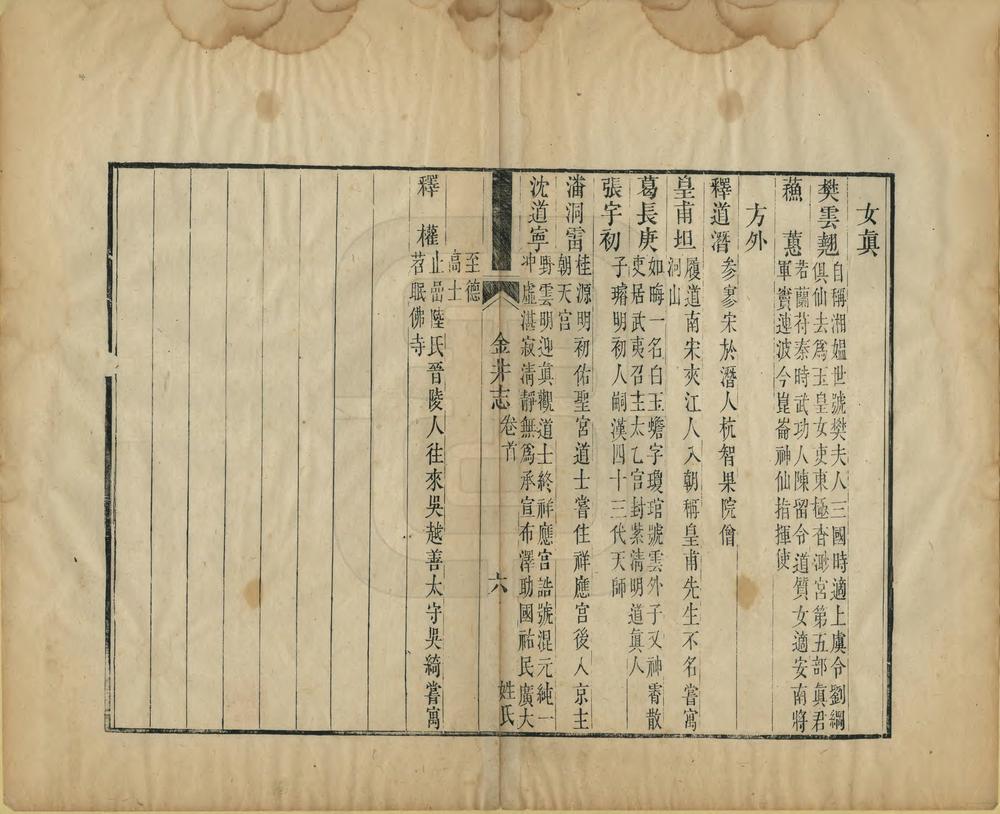 女眞
樊雲翹
自稱湘媼世號樊夫人三國時適上虞令劉綱
俱仙去爲玉皇女吏東極杳渺宮第五部眞君
蘓蕙
若蘭苻秦時武功人陳留令道質女適安南將
軍竇連波今崑崙神仙指揮使
方外
釋道潛
參寥宋於潛人杭智果院僧
皇甫坦
履道南宋夾江人入朝稱皇甫先生不名嘗寓
洞山
葛長庚
如晦一名白玉蟾字瓊琯號雲外子又神霄散
吏居武夷召主太乙宮封紫淸明道眞人
張宇初
子璿明初人嗣漢四十三代天師
潘洞雷
桂源明初佑聖宮道士嘗住祥應宮後入京主
朝天宮
沈道寧
野雲明迎眞觀道士終祥應宮誥號混元純一
冲虛湛寂淸靜無爲承宣布澤助國祐民廣大
金井志
卷首
六
姓氏
至德
高士
釋權
止嵒陸氏晉陵人往來吳越善太守吳綺嘗寓
苕眠佛寺